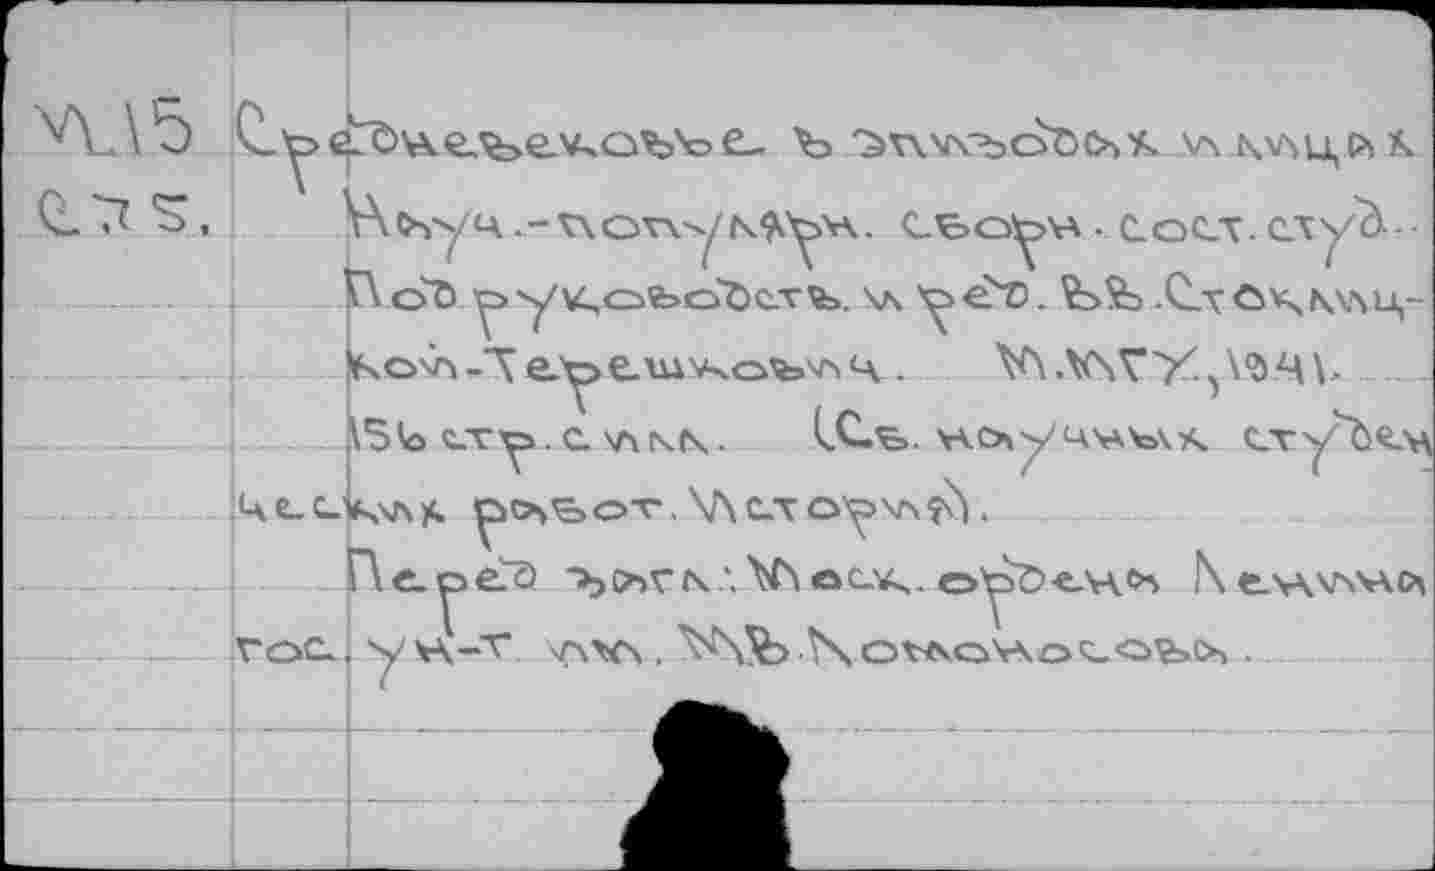 И15 Средневековье в эпизодах и лицах
С75. Научн.-популярн. сборн. сост. студ.
Под руководств. и ред. В.В. Стоклиц-
кой-Терешкович. М. МГУ, 1941.
156 стр. с илл. (Сб. научных студен
ческих работ. История).
Перед загл.: Моск. ордена Ленина
гос. ун-т им. М.В. Ломоносова.